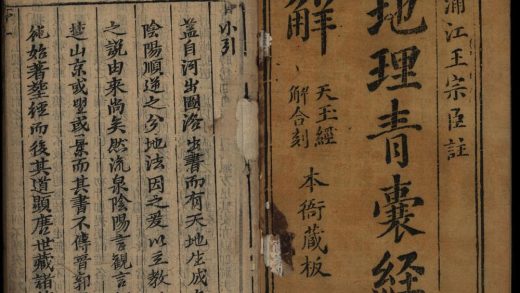 浦江王宗臣註
地理青囊經
解
天玉經
解合刻
本衙藏板
小引
蓋自河出圖洛出書而有天地生成
陰陽順逆之分地法因之爰以立教
之說由來尚矣然流泉陰陽言觀言
楚山京或望或景而其書不傳晉郭
純始著塟經而後其道顯唐世藏諸